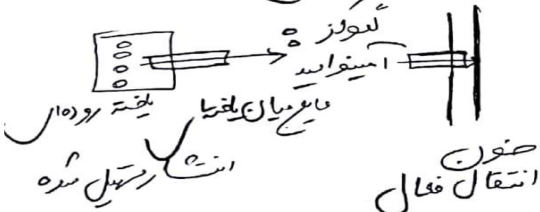 گلوکز
آمینواسید
یاخته روده‌ای
مایع میان یاخته‌ای
خون
انتشار تسهیل شده
انتقال فعال